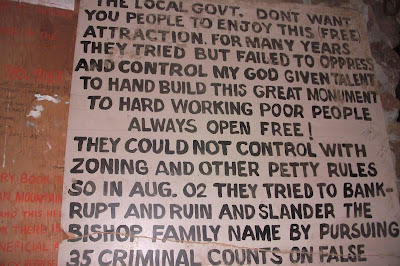 THE LOCAL GOVT. DONT WANT
YOU PEOPLE TO ENJOY THIS (FREE)
ATTRACTION. FOR MANY YEARS
THEY TRIED BUT FAILED TO OPPRESS
AND CONTROL MY GOD GIVEN TALENT
TO HAND BUILD THIS GREAT MONUMENT
TO HARD WORKING POOR PEOPLE
ALWAYS OPEN FREE!
THEY COULD NOT CONTROL WITH
ZONING AND OTHER PETTY RULES
SO IN AUG. 02 THEY TRIED TO BANK-
RUPT AND RUIN AND SLANDER THE
BISHOP FAMILY NAME BY PURSUING
35 CRIMINAL COUNTS ON FALSE
RY BOOK
AN MOUNTAIN
AND THIS HE
THERE IS
NEFICIAL